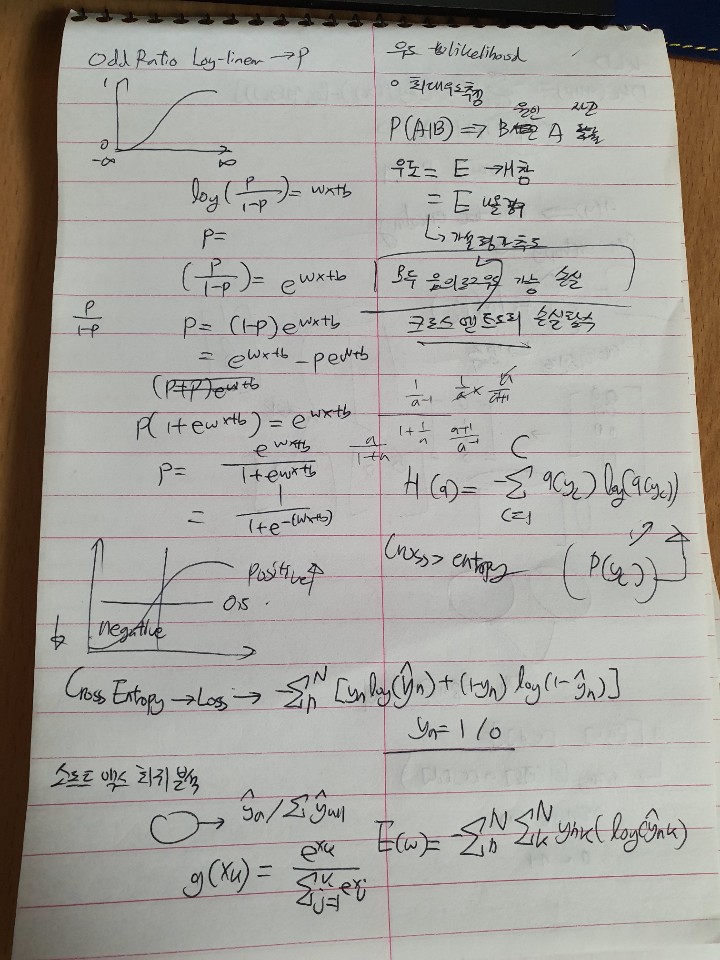 Odd Ratio Log-linear → P
1
0
-∞ ∞
log(p/1-p) = wx+b
p=
(p/1-p) = e^wx+b
p/1-p
p = (1-p)e^wx+b
= e^wx+b - pe^wx+b
p(1+e^wx+b) = e^wx+b
p= e^wx+b/1+e^wx+b
= 1/1+e^-(wx+b)
positive↑
0.5
negative
우도 likelihood
○ 최대우도추정
원인 사건
P(A|B) => B A
우도 = E →
= E
↳
모두 음의로그우도 가능 손실
크로스 엔트로피 손실함수
1/a-1 1/a ×
1+1/a a+1/a-1
a/1+a
H(q) = -∑ C c=1 q(yc) log(q(yc))
Cross > entropy (P(yc))
Cross Entropy → Loss → -∑ N n [yn log(ŷn) + (1-yn) log(1-ŷn)]
yn = 1/0
소프트 맥스 회귀 분석
→ ŷn/∑ŷ
g(xk) = e^xk/∑ k j=1 e^xj
E(w) = -∑ N n ∑ N k ynk(log(ŷnk)